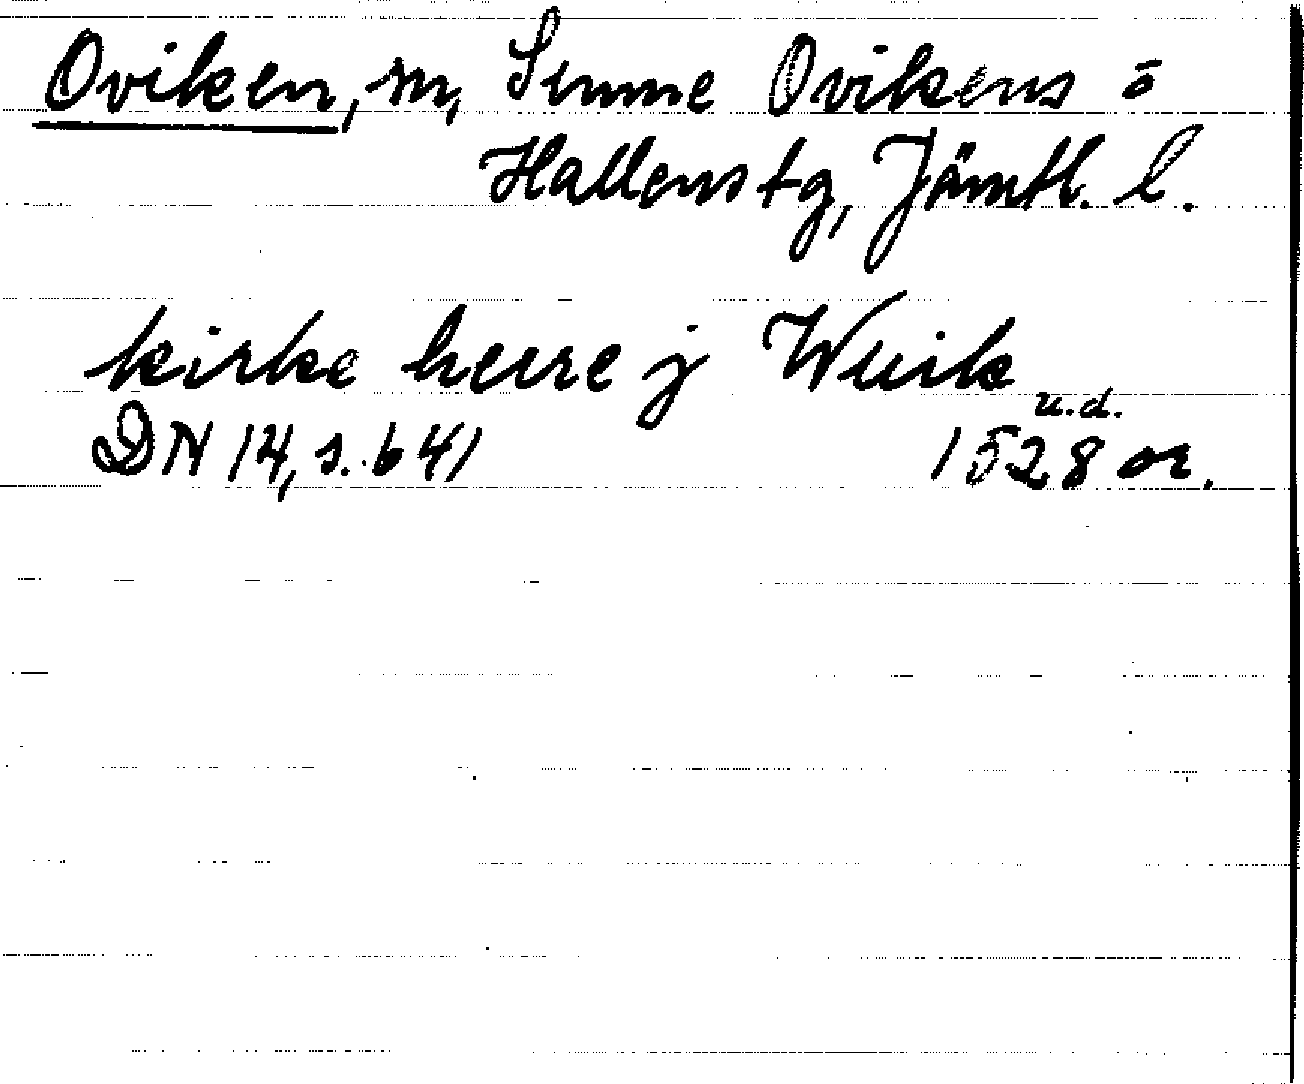 Oviken, sn, Sunne Ovikens o
Hallens tg, Jämtl. l.
kirke heere j Wuik
u.d.
DN 14, s. 641 1528 or.